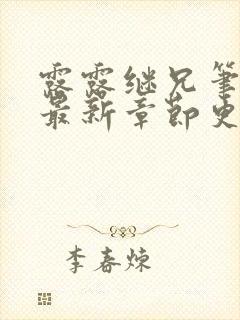 露露继兄笔
最新章节史
李春炼